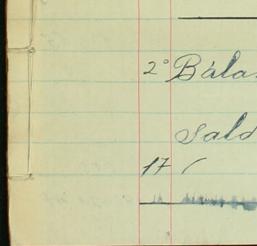 2° Bála
Sald
17